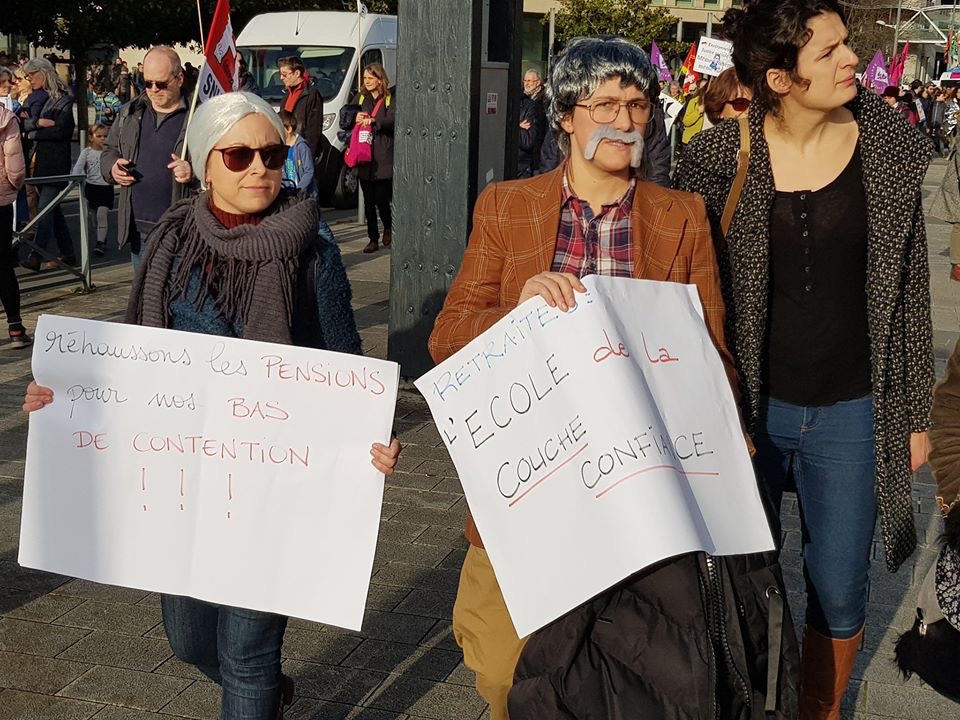 réhaussons les PENSIONS
pour nos BAS
DE CONTENTION
! ! !
RETRAITE.S :
L'ÉCOLE de la
COUCHE
CONFIANCE